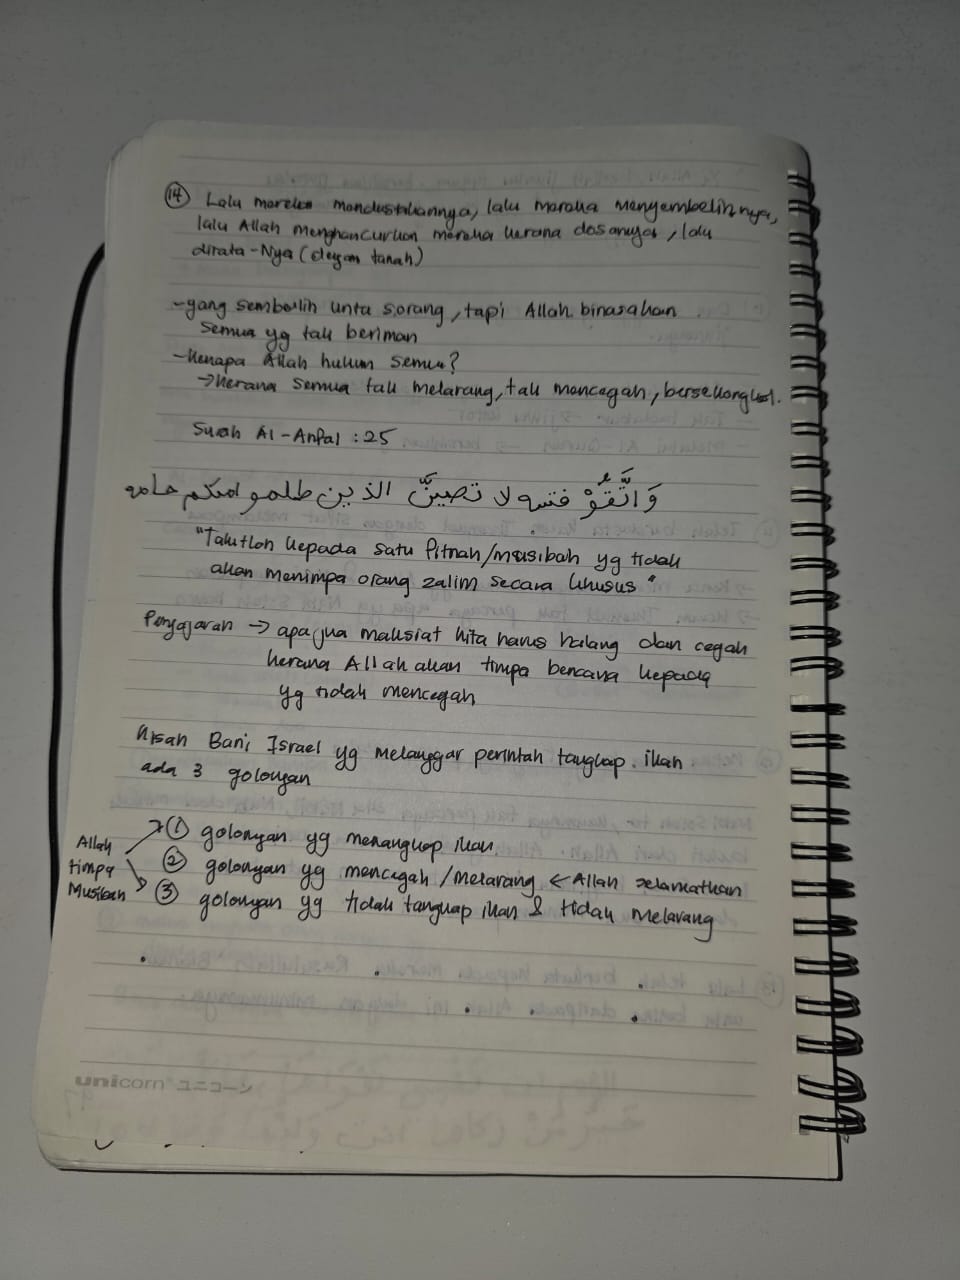 14 Lalu mereka mendustakannya, lalu mereka menyembelihnya,
lalu Allah menghancurkan mereka kerana dosanya, lalu
dirata-Nya (dengan tanah)
- yang sembelih unta sorang, tapi Allah binasakan
semua yg tak beriman
- kenapa Allah hukum semua?
→ kerana semua tak melarang, tak mencegah, bersekongkol.
Surah Al-Anfal : 25
وَاتَّقُوْ فتنه لا تصيبنَّ الذين ظلمو امنكم خامه
"Takutlah kepada satu fitnah/musibah yg tidak
akan menimpa orang zalim secara khusus"
Pengajaran → apa jua maksiat kita harus halang dan cegah
kerana Allah akan timpa bencana kepada
yg tidak mencegah
Kisah Bani Israel yg melanggar perintah tangkap ikan
ada 3 golongan
Allah timpa Musibah
1 golongan yg menangkap ikan
2 golongan yg mencegah/melarang ← Allah selamatkan
3 golongan yg tidak tangkap ikan & tidak melarang
unicorn ユニコーン